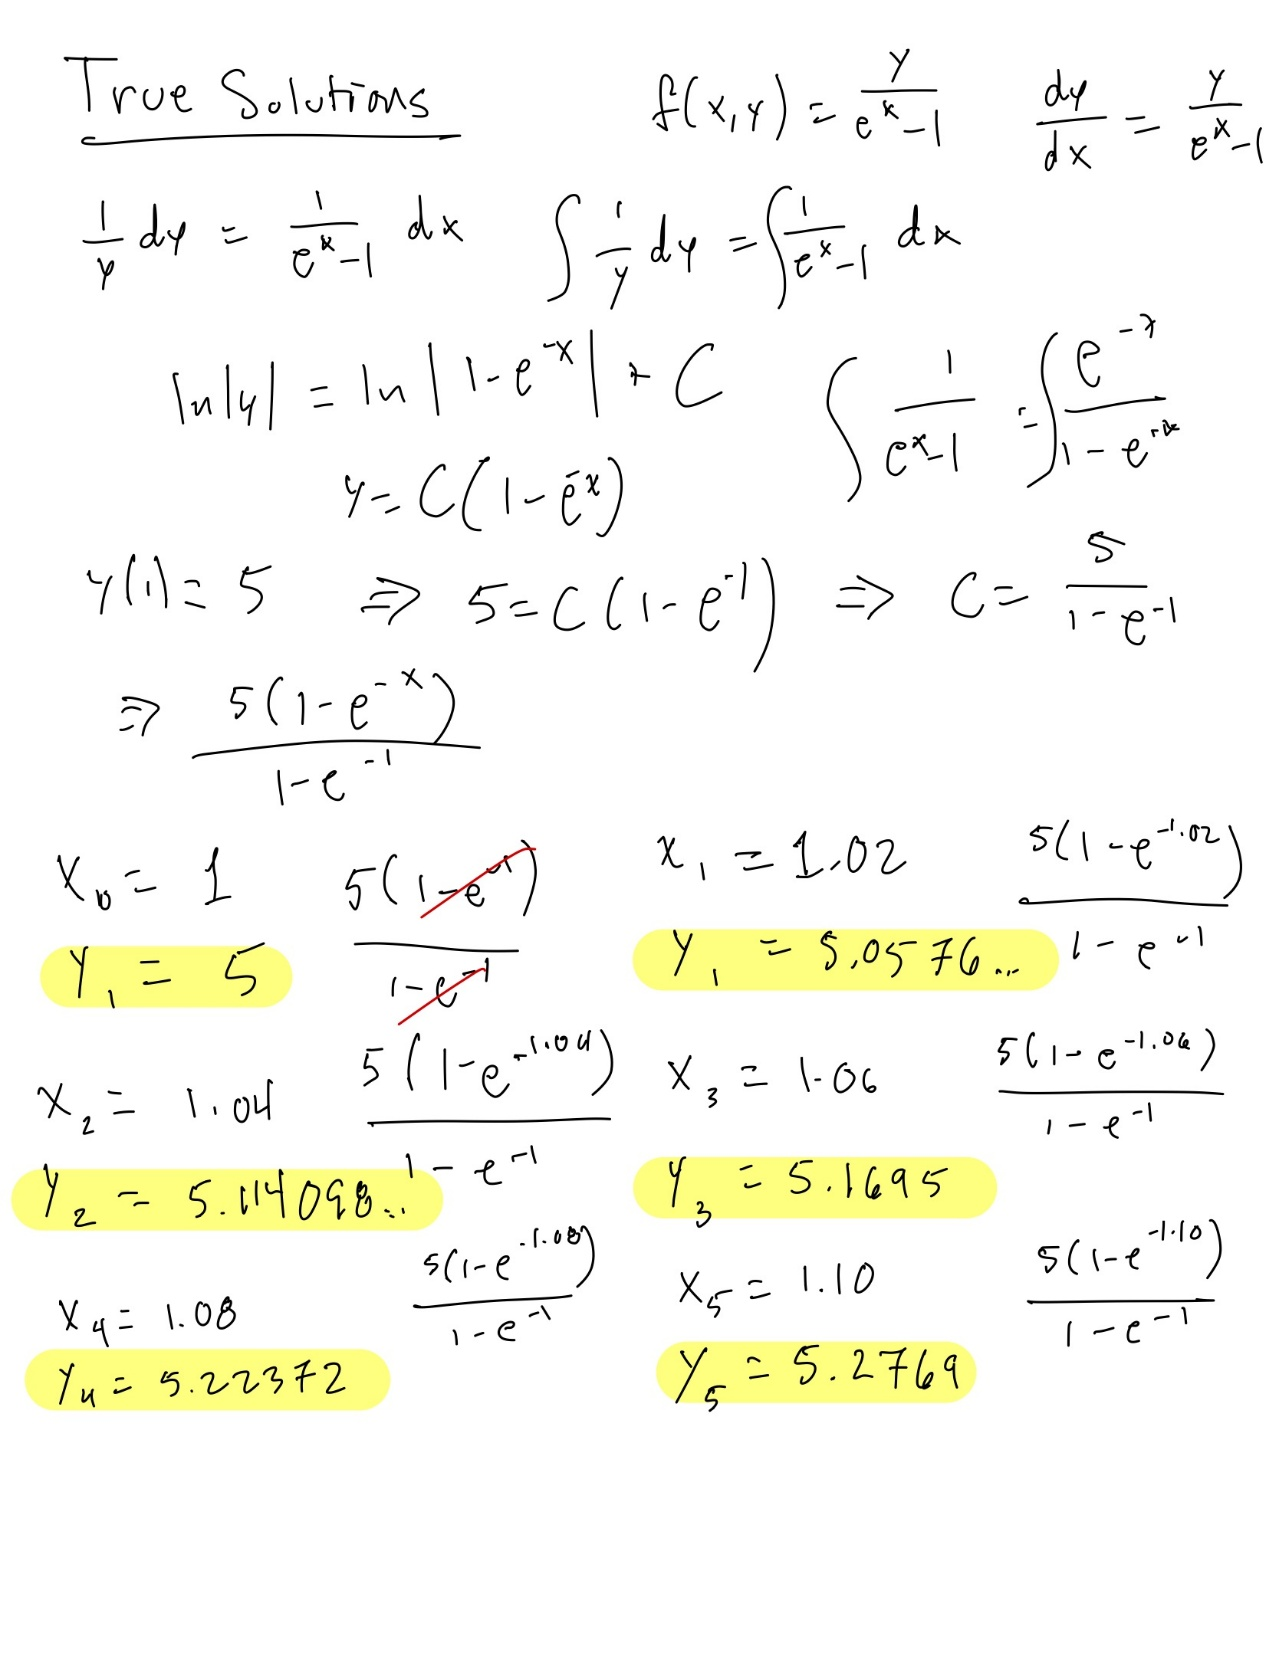 True Solutions f(x,y) = y/(e^x-1) dy/dx = y/(e^x-1)
1/y dy = 1/(e^x-1) dx ∫ 1/y dy = ∫ 1/(e^x-1) dx
ln|y| = ln|1-e^-x| + C ∫ 1/(e^x-1) = ∫ e^-x/(1-e^-x)
y = C(1-e^-x)
y(1) = 5 ⇒ 5 = C(1-e^-1) ⇒ C = 5/(1-e^-1)
⇒ 5(1-e^-x)/(1-e^-1)
x_0 = 1 5(1-e^-1)/(1-e^-1) x_1 = 1.02 5(1-e^-1.02)/(1-e^-1)
y_1 = 5 y_1 = 5.0576...
x_2 = 1.04 5(1-e^-1.04)/(1-e^-1) x_3 = 1.06 5(1-e^-1.06)/(1-e^-1)
y_2 = 5.114098... y_3 = 5.1695
x_4 = 1.08 5(1-e^-1.08)/(1-e^-1) x_5 = 1.10 5(1-e^-1.10)/(1-e^-1)
y_4 = 5.22372 y_5 = 5.2769